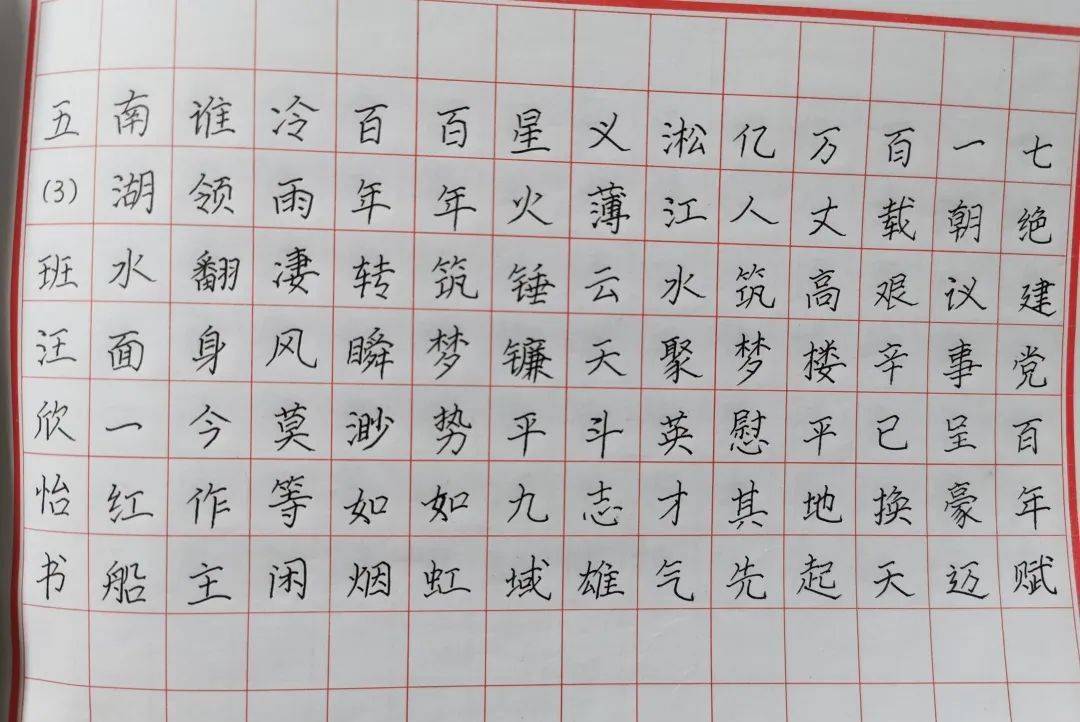 七绝建党百年赋
一朝议事呈豪迈
百载艰辛已换天
万丈高楼平地起
亿人筑梦慰其先
淞江水聚英才气
义薄云天斗志雄
星火锤镰平九域
百年筑梦势如虹
百年转瞬渺如烟
冷雨凄风莫等闲
谁领翻身今作主
南湖水面一红船
五(3)班汪欣怡书